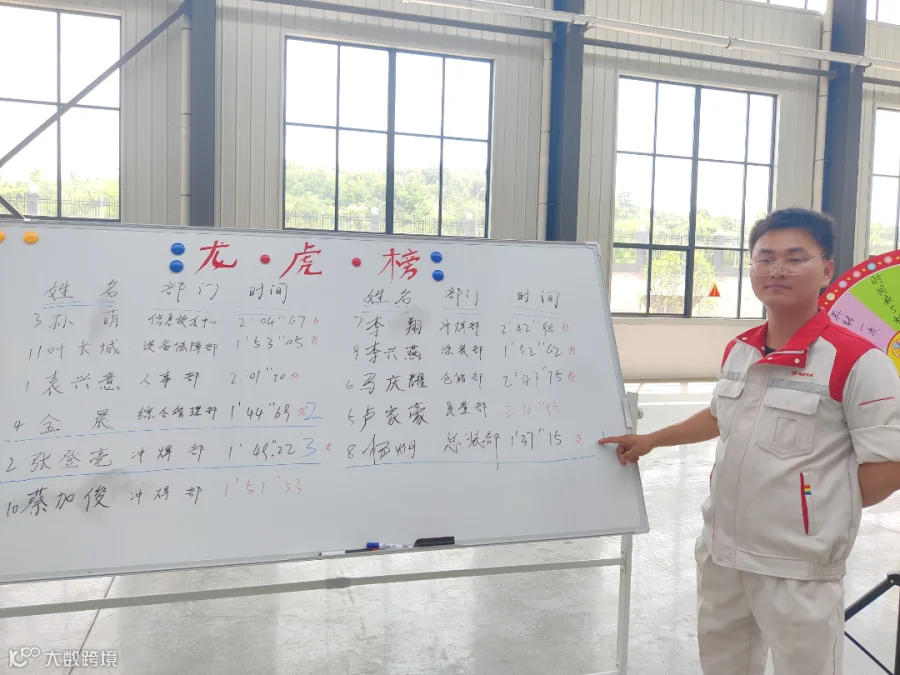 龙·虎·榜
姓名 部门 时间
3 孙萌 信息技术中心 2'04"67
11 叶长城 设备保障部 1'53"05
1 袁兴意 人事部 2'01"20
4 金晨 综合管理部 1'44"69 2
2 张登亮 冲焊部 1'49"22 3
10 蔡加俊 冲焊部 1'51"53
姓名 部门 时间
7 李翔 冲焊部
9 李兴燕 涂装部 1'52"62
6 马庆耀 仓储部 2'47"75
5 卢家豪 质量部
8 总装部 1'37"15 1
大数跨境